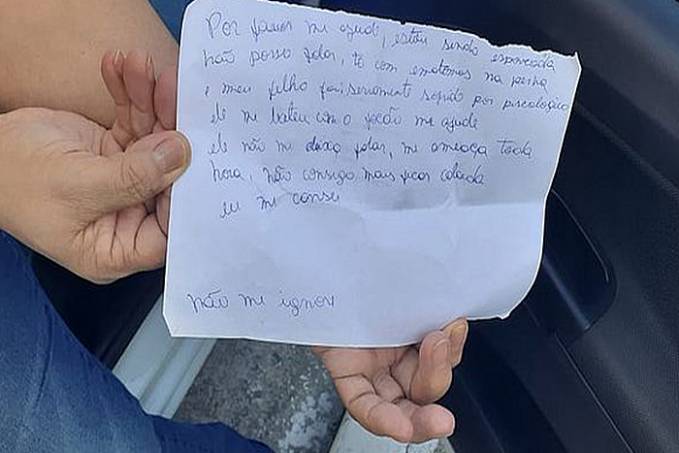 Por favor me ajude, estou sendo espancada
não posso falar, to com ematomas na perna
e meu filho foi seriamente sopido por piscologico
ele me bateu com o facão me ajude
ele não me dexa falar, me ameaça toda
hora, não consigo mais ficar calada
eu me
não me ignore